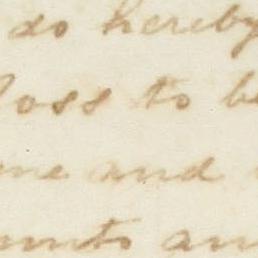 do hereby
loss to be
me and
unts an